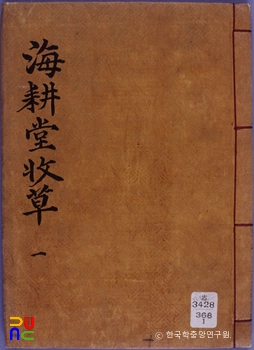 海耕堂收草
一
3428
368
1
© 한국학중앙연구원